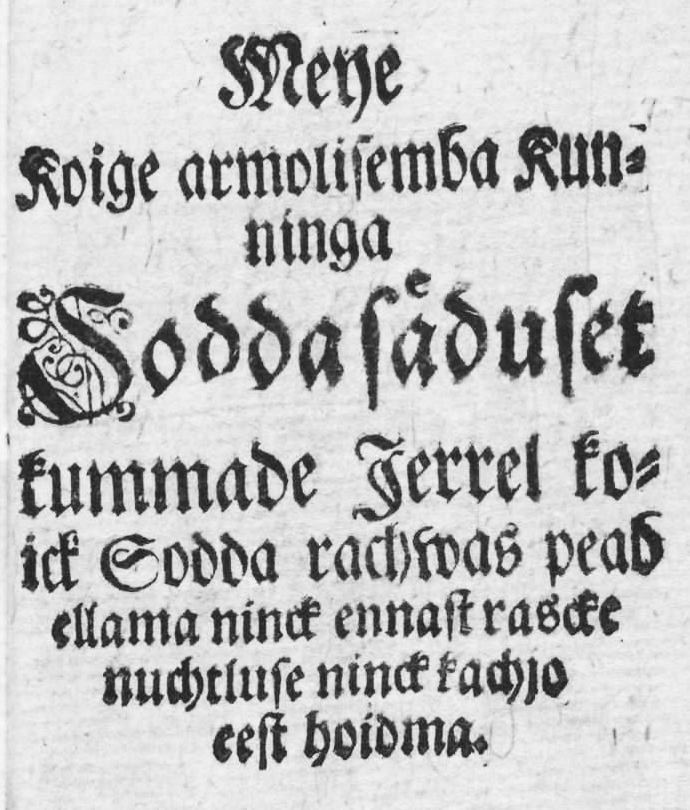 Meye
Koige armoliſemba Kun⸗
ninga
Sodda ſaͤduſet
kummade Jerrel ko⸗
ick Sodda rachwas peab
ellama ninck ennaſt rascke
nuchtluſe ninck kachjo
eeſt hoidma.